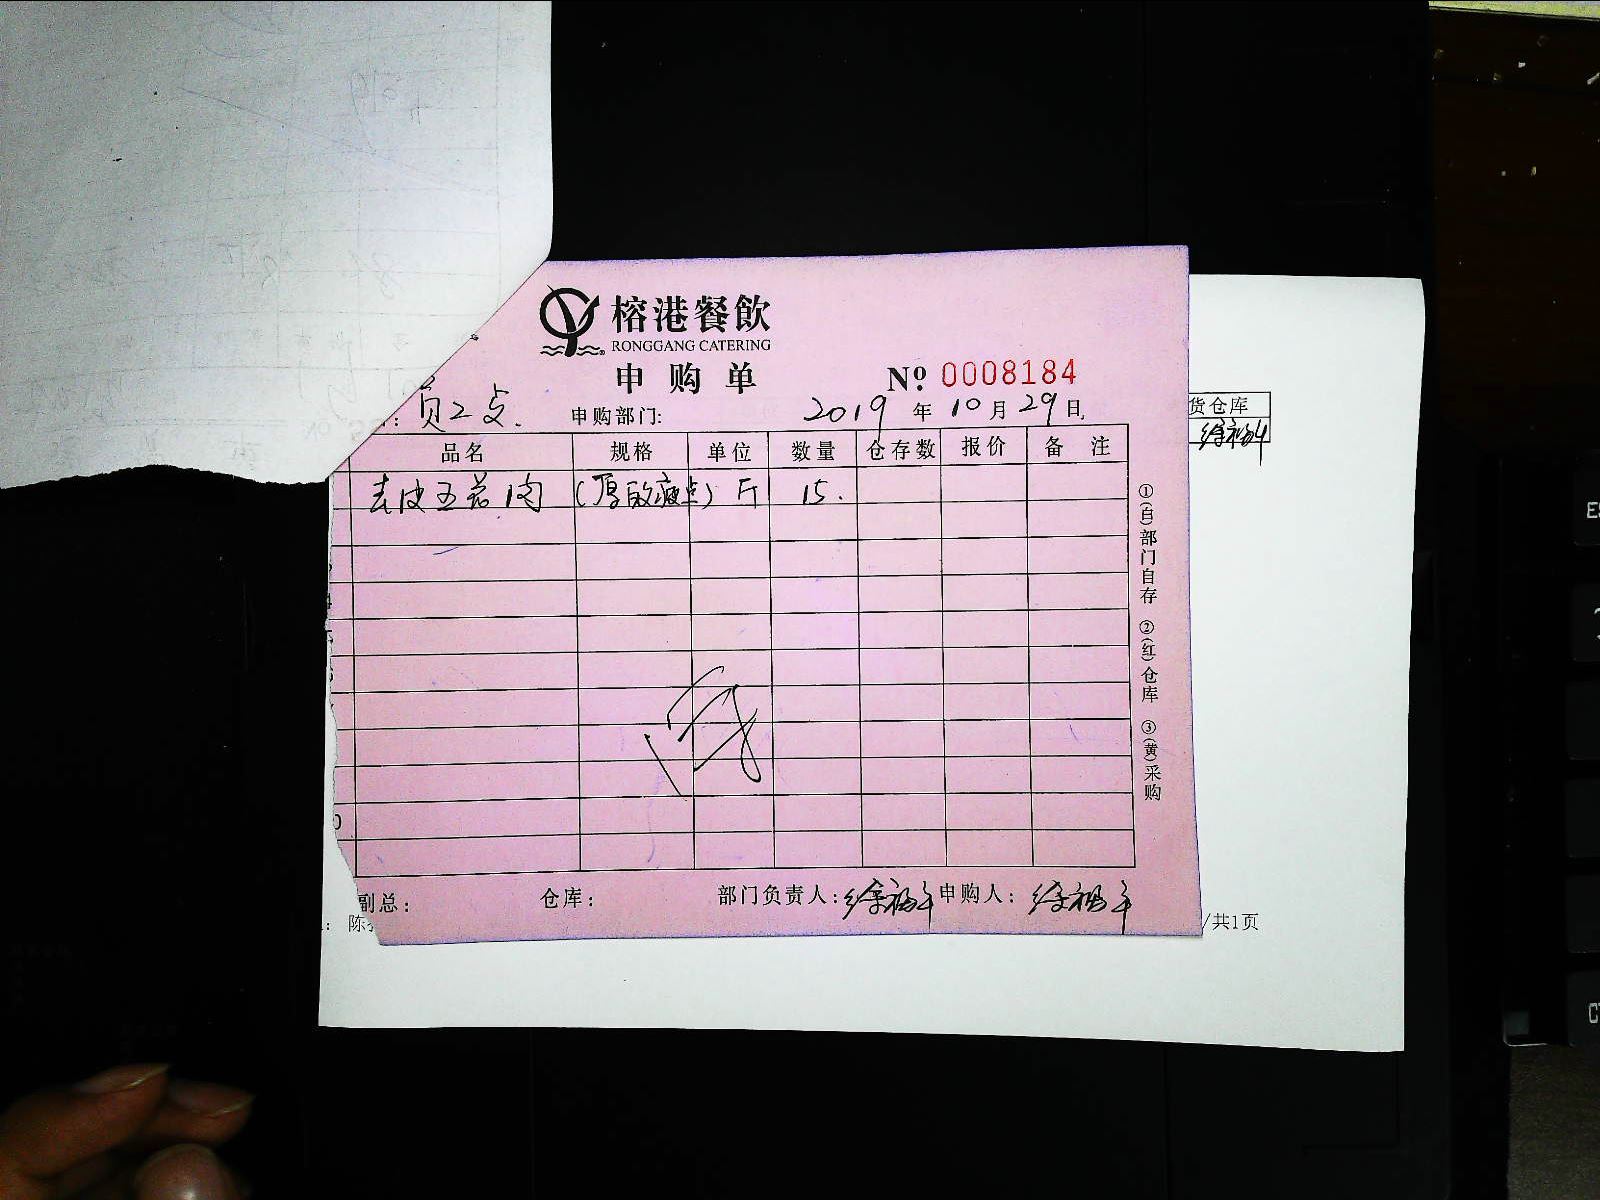 榕港餐飲
RONGGANG CATERING
申购单
№ 0008184
员工 申购部门: 2019年10月29日
品名 规格 单位 数量 仓存数 报价 备注
去皮五花肉 斤 15.
①(白)部门自存 ②(红)仓库 ③(黄)采购
副总: 仓库: 部门负责人: 申购人:
货仓库
陈
/共1页